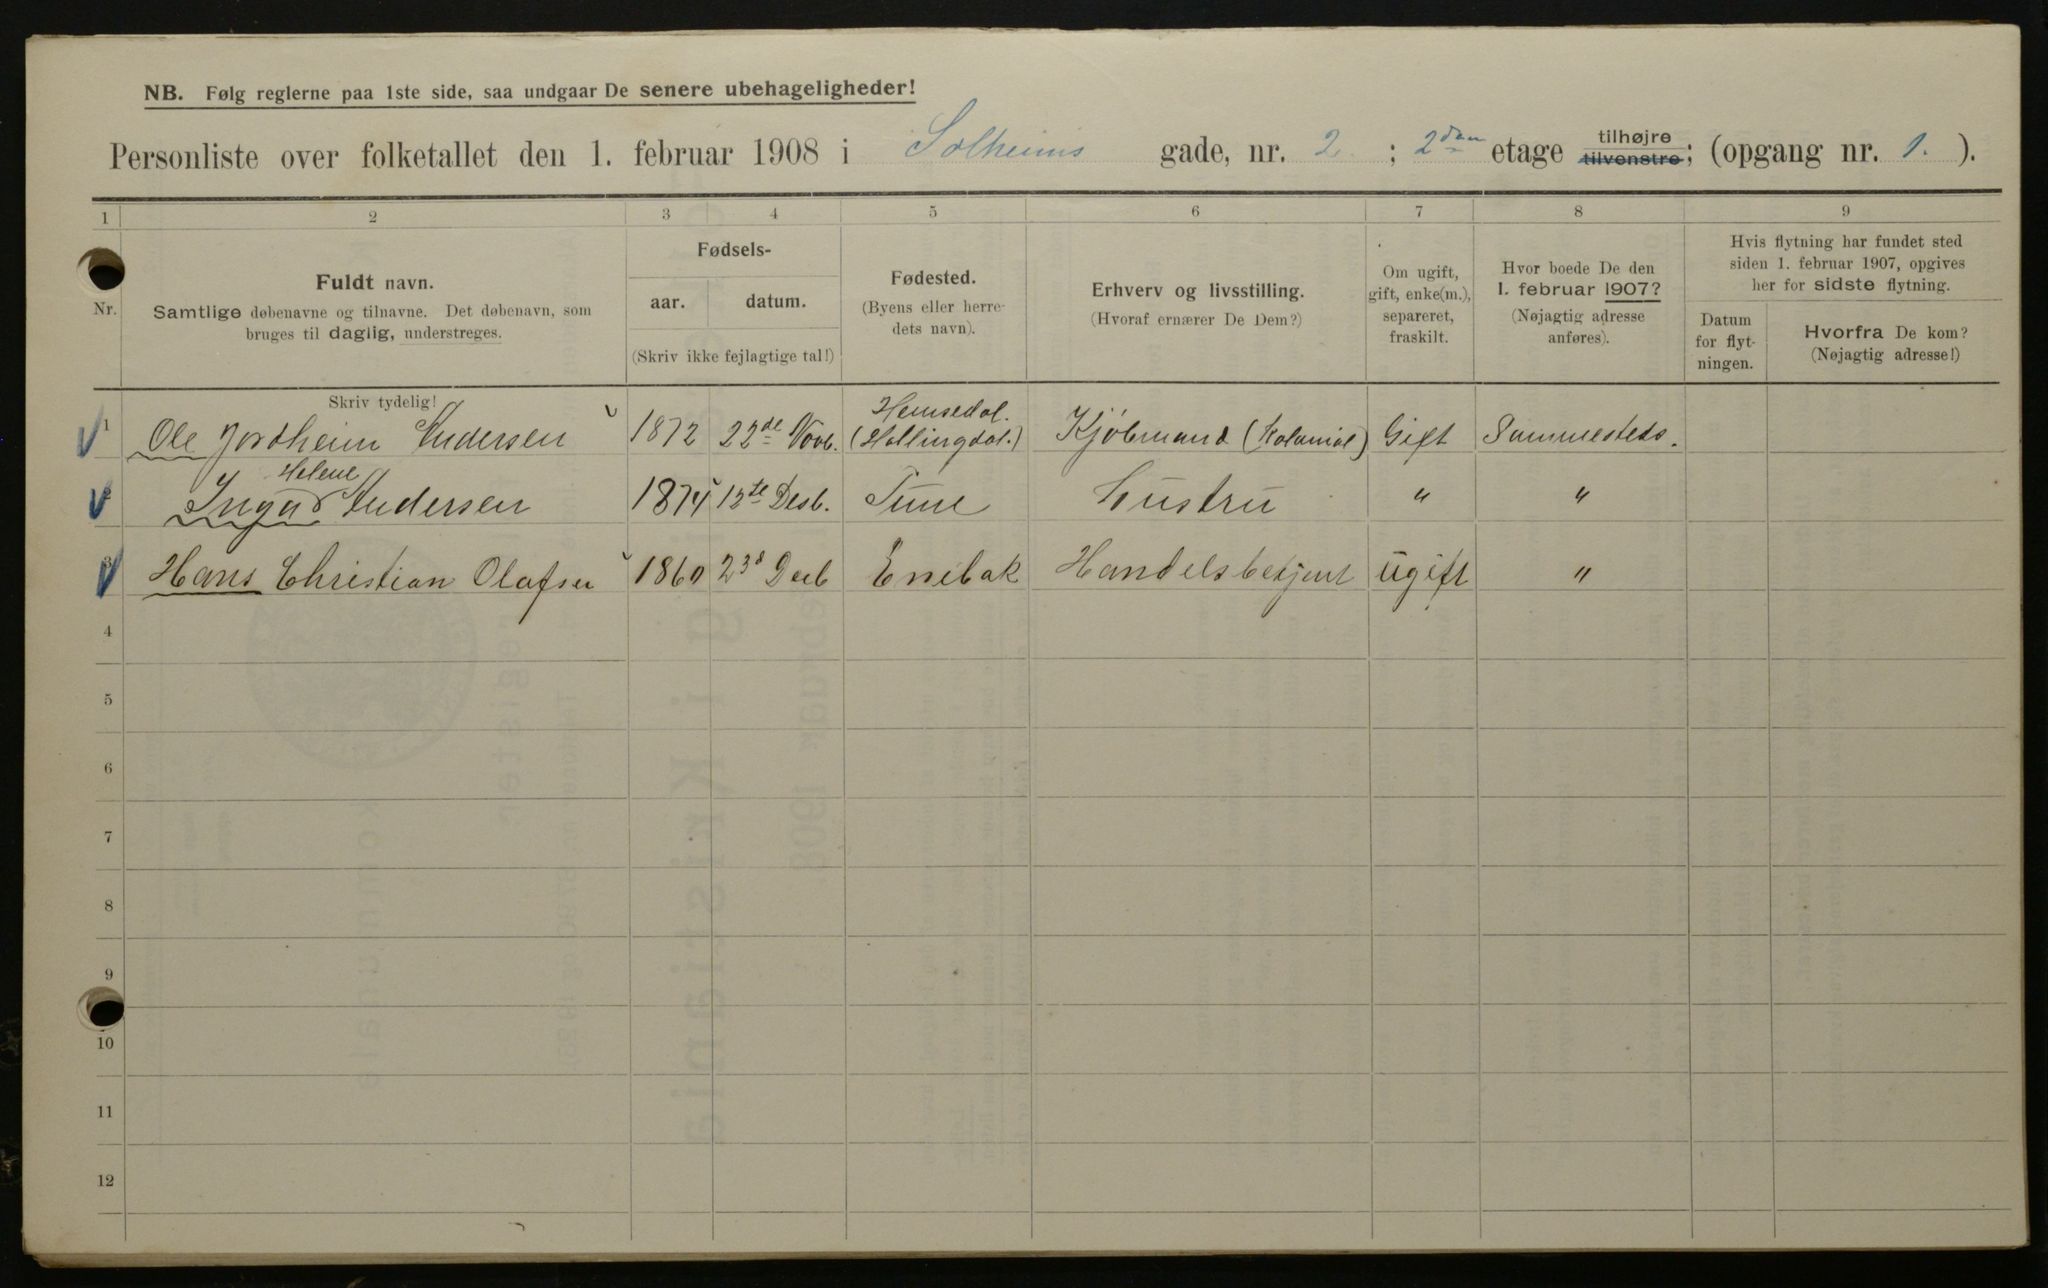 NB. Følg reglerne paa 1ste side, saa undgaar De senere ubehageligheder!
Personliste over folketallet den 1. februar 1908 i Solheims gade, nr. 2 ; 2den etage tilhøjre tilvenstre; (opgang nr. 1. ).
1 2 3 4 5 6 7 8 9
Nr.
Fuldt navn.
Samtlige døbenavne og tilnavne. Det døbenavn, som
bruges til daglig, understreges.
Fødsels-
aar. datum.
(Skriv ikke fejlagtige tal!)
Fødested.
(Byens eller herre-
dets navn).
Erhverv og livsstilling.
(Hvoraf ernærer De Dem?)
Om ugift,
gift, enke(m.),
separeret,
fraskilt.
Hvor boede De den
1. februar 1907?
(Nøjagtig adresse
anføres).
Hvis flytning har fundet sted
siden 1. februar 1907, opgives
her for sidste flytning.
Datum
for flyt-
ningen.
Hvorfra De kom?
(Nøjagtig adresse!)
Skriv tydelig!
Hemsedal.
1 Ole Jordheim Andersen 1872 22de Novb. (Hallingdal.) Kjöbmand (Kolonial) Gift Sammesteds.
Helene
2 Inga Andersen 1874 12te Desb. Tune Hustru " "
3 Hans Christian Olafsen 1860 23d Decb Enebak Handelsbetjent ugift "
4
5
6
7
8
9
10
11
12